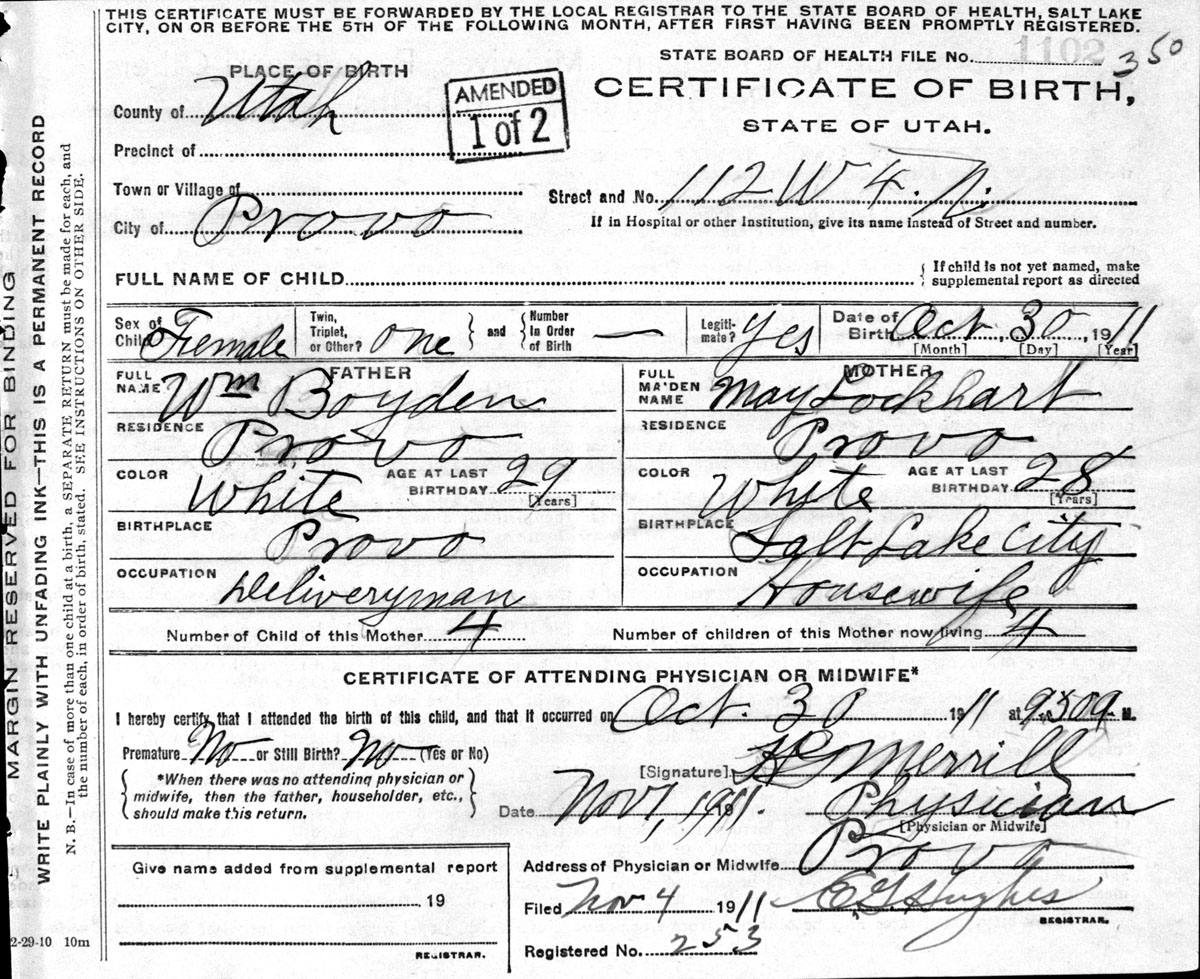 THIS CERTIFICATE MUST BE FORWARDED BY THE LOCAL REGISTRAR TO THE STATE BOARD OF HEALTH, SALT LAKE
CITY, ON OR BEFORE THE 5TH OF THE FOLLOWING MONTH, AFTER FIRST HAVING BEEN PROMPTLY REGISTERED.
STATE BOARD OF HEALTH FILE No. 1102 350
PLACE OF BIRTH
CERTIFICATE OF BIRTH,
STATE OF UTAH.
AMENDED
1 of 2
County of Utah
Precinct of
Town or Village of
Street and No. 112 W 4. N.
City of Provo
If in Hospital or other Institution, give its name instead of Street and number.
FULL NAME OF CHILD
{ If child is not yet named, make
supplemental report as directed
Sex of Child Female
Twin, Triplet, or Other? One } and { Number In Order of Birth —
Legitimate? Yes
Date of Birth Oct. 30, 1911
[Month] [Day] [Year]
FATHER
FULL NAME Wm Boyden
RESIDENCE Provo
COLOR White AGE AT LAST BIRTHDAY 29 [Years]
BIRTHPLACE Provo
OCCUPATION Deliveryman
MOTHER
FULL MAIDEN NAME May Lockhart
RESIDENCE Provo
COLOR White AGE AT LAST BIRTHDAY 28 [Years]
BIRTHPLACE Salt Lake City
OCCUPATION Housewife
Number of Child of this Mother 4
Number of children of this Mother now living 4
CERTIFICATE OF ATTENDING PHYSICIAN OR MIDWIFE*
I hereby certify that I attended the birth of this child, and that it occurred on Oct. 30 1911 at M.
Premature No or Still Birth? No (Yes or No)
{ *When there was no attending physician or
midwife, then the father, householder, etc.,
should make this return. }
[Signature] Merrill
Date Nov 1, 1911. Physician
[Physician or Midwife]
Address of Physician or Midwife Provo
Filed Nov 4 1911 Hughes
REGISTRAR.
Registered No. 253
Give name added from supplemental report
19
REGISTRAR.
2-29-10 10m
MARGIN RESERVED FOR BINDING
WRITE PLAINLY WITH UNFADING INK—THIS IS A PERMANENT RECORD
N. B.—In case of more than one child at a birth, a SEPARATE RETURN must be made for each, and
the number of each, in order of birth, stated. SEE INSTRUCTIONS ON OTHER SIDE.